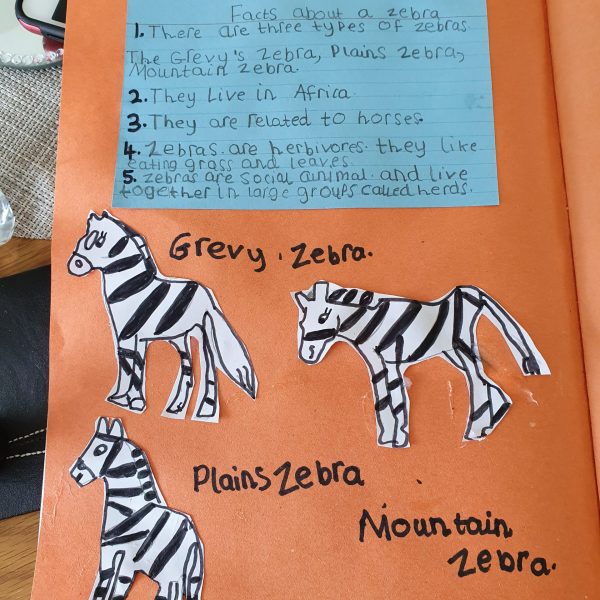 Facts about a zebra
1. There are three types of zebras.
The Grevy's Zebra, Plains Zebra,
Mountain Zebra.
2. They Live in Africa
3. They are related to horses.
4. Zebras are herbivores. they like
eating grass and leaves.
5. zebras are social animal. and live
together in large groups called herds.
Grevy . Zebra.
Plains Zebra
Mountain
Zebra.